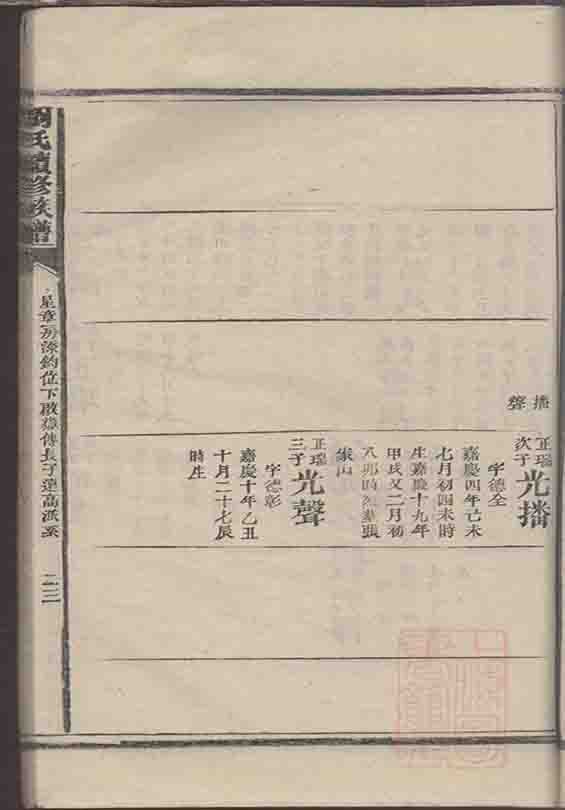 播
聲
正瑞
次子
光播
字德全
嘉慶四年己未
七月初四未時
生嘉慶十九年
甲戌又二月初
八卯時殁葬張
家山
正瑞
三子
光聲
字德彰
嘉慶十年乙丑
十月二十七辰
時生
氏續修族譜
星章房深鈞位下啟雄傳長子蓮高派系
二三